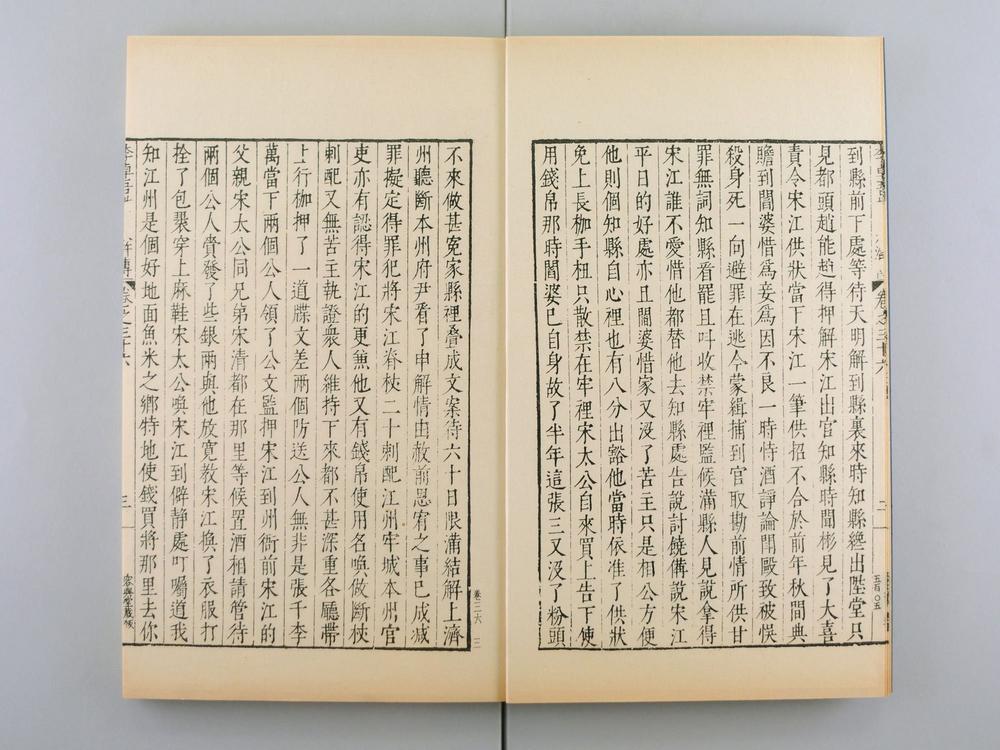 到縣前下處等待天明解到縣裏來時知縣纔出陞堂只
見都頭趙能趙得押解宋江出官知縣時聞彬見了大喜
責令宋江供狀當下宋江一筆供招不合於前年秋間典
贍到閻婆惜爲妾爲因不良一時恃酒諍論鬥毆致被悞
殺身死一向避罪在逃今蒙緝捕到官取勘前情所供甘
罪無詞知縣看罷且叫收禁牢裡監候滿縣人見說拿得
宋江誰不愛惜他都替他去知縣處告說討饒備說宋江
平日的好處亦且閻婆惜家又沒了苦主只是相公方便
他則個知縣自心裡也有八分出豁他當時依准了供狀
免上長枷手杻只散禁在牢裡宋太公自來買上告下使
用錢帛那時閻婆已自身故了半年這張三又沒了粉頭
五百〇五
不來做甚冤家縣裡叠成文案待六十日限滿結解上濟
州聽斷本州府尹看了申解情由赦前恩宥之事已成减
罪擬定得罪犯將宋江脊杖二十刺配江州牢城本州官
吏亦有認得宋江的更兼他又有錢帛使用名喚做斷杖
刺配又無苦主執證衆人維持下來都不甚深重各廳帶
上行枷押了一道牒文差兩個防送公人無非是張千李
萬當下兩個公人領了公文監押宋江到州衙前宋江的
父親宋太公同兄弟宋清都在那里等候置酒相請管待
兩個公人賫發了些銀兩與他放寬教宋江換了衣服打
拴了包裹穿上麻鞋宋太公喚宋江到僻靜處叮囑道我
知江州是個好地面魚米之鄉特地使錢買將那里去你
卷三六 三
卷之三十六 三
容與堂藏板